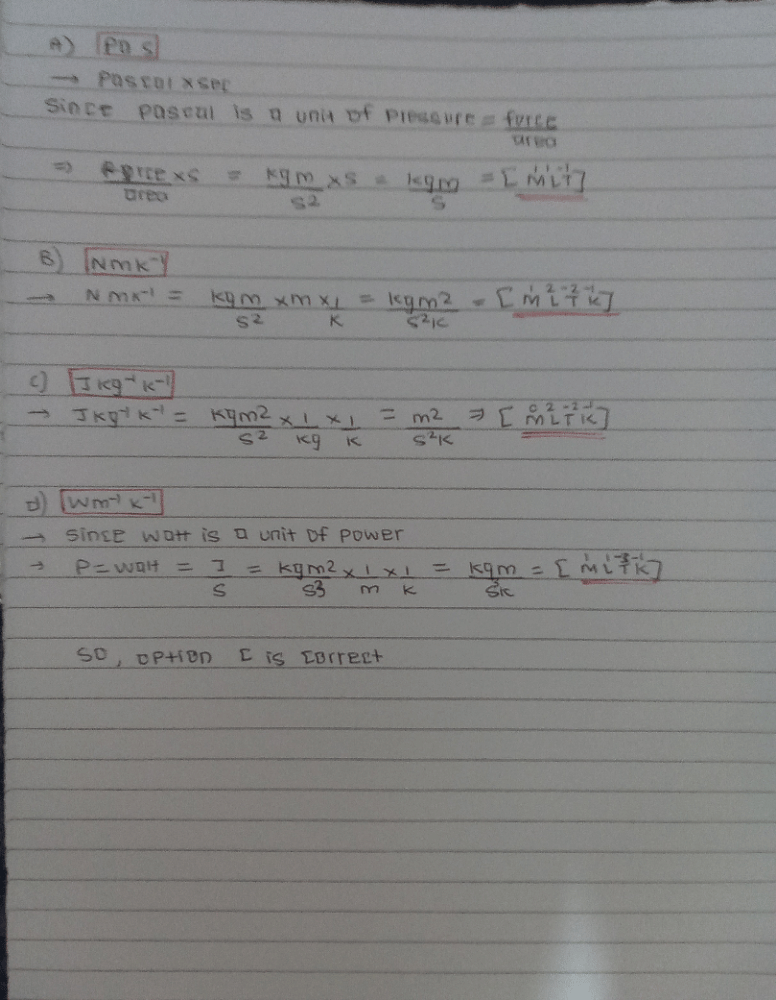 A) Pa s
→ Pascal x sec
Since pascal is a unit of Pressure = force/area
⇒ force/area x s = kgm/s² x s = kgm/s = [M¹L¹T⁻¹]
B) Nmk⁻¹
→ Nmk⁻¹ = kgm/s² x m x 1/k = kgm²/s²k = [M¹L²T⁻²K⁻¹]
c) Jkg⁻¹k⁻¹
→ Jkg⁻¹k⁻¹ = kgm²/s² x 1/kg x 1/k = m²/s²k ⇒ [M⁰L²T⁻²K⁻¹]
d) Wm⁻¹k⁻¹
→ since watt is a unit of power
→ P = watt = J/s = kgm²/s³ x 1/m x 1/k = kgm/s³k = [M¹L¹T⁻³K⁻¹]
so, option C is correct